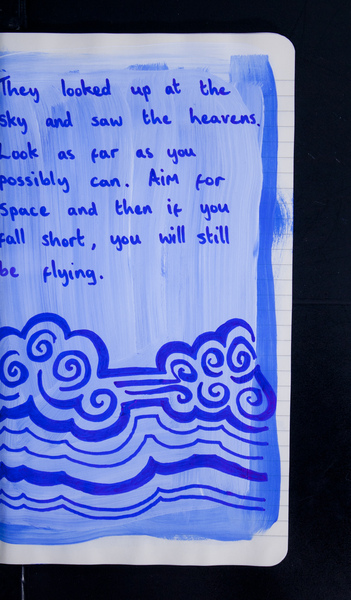 They looked up at the
sky and saw the heavens.
Look as far as you
possibly can. Aim for
space and then if you
fall short, you will still
be flying.